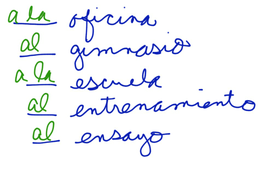 a la oficina
al gimnasio
a la escuela
al entrenamiento
al ensayo